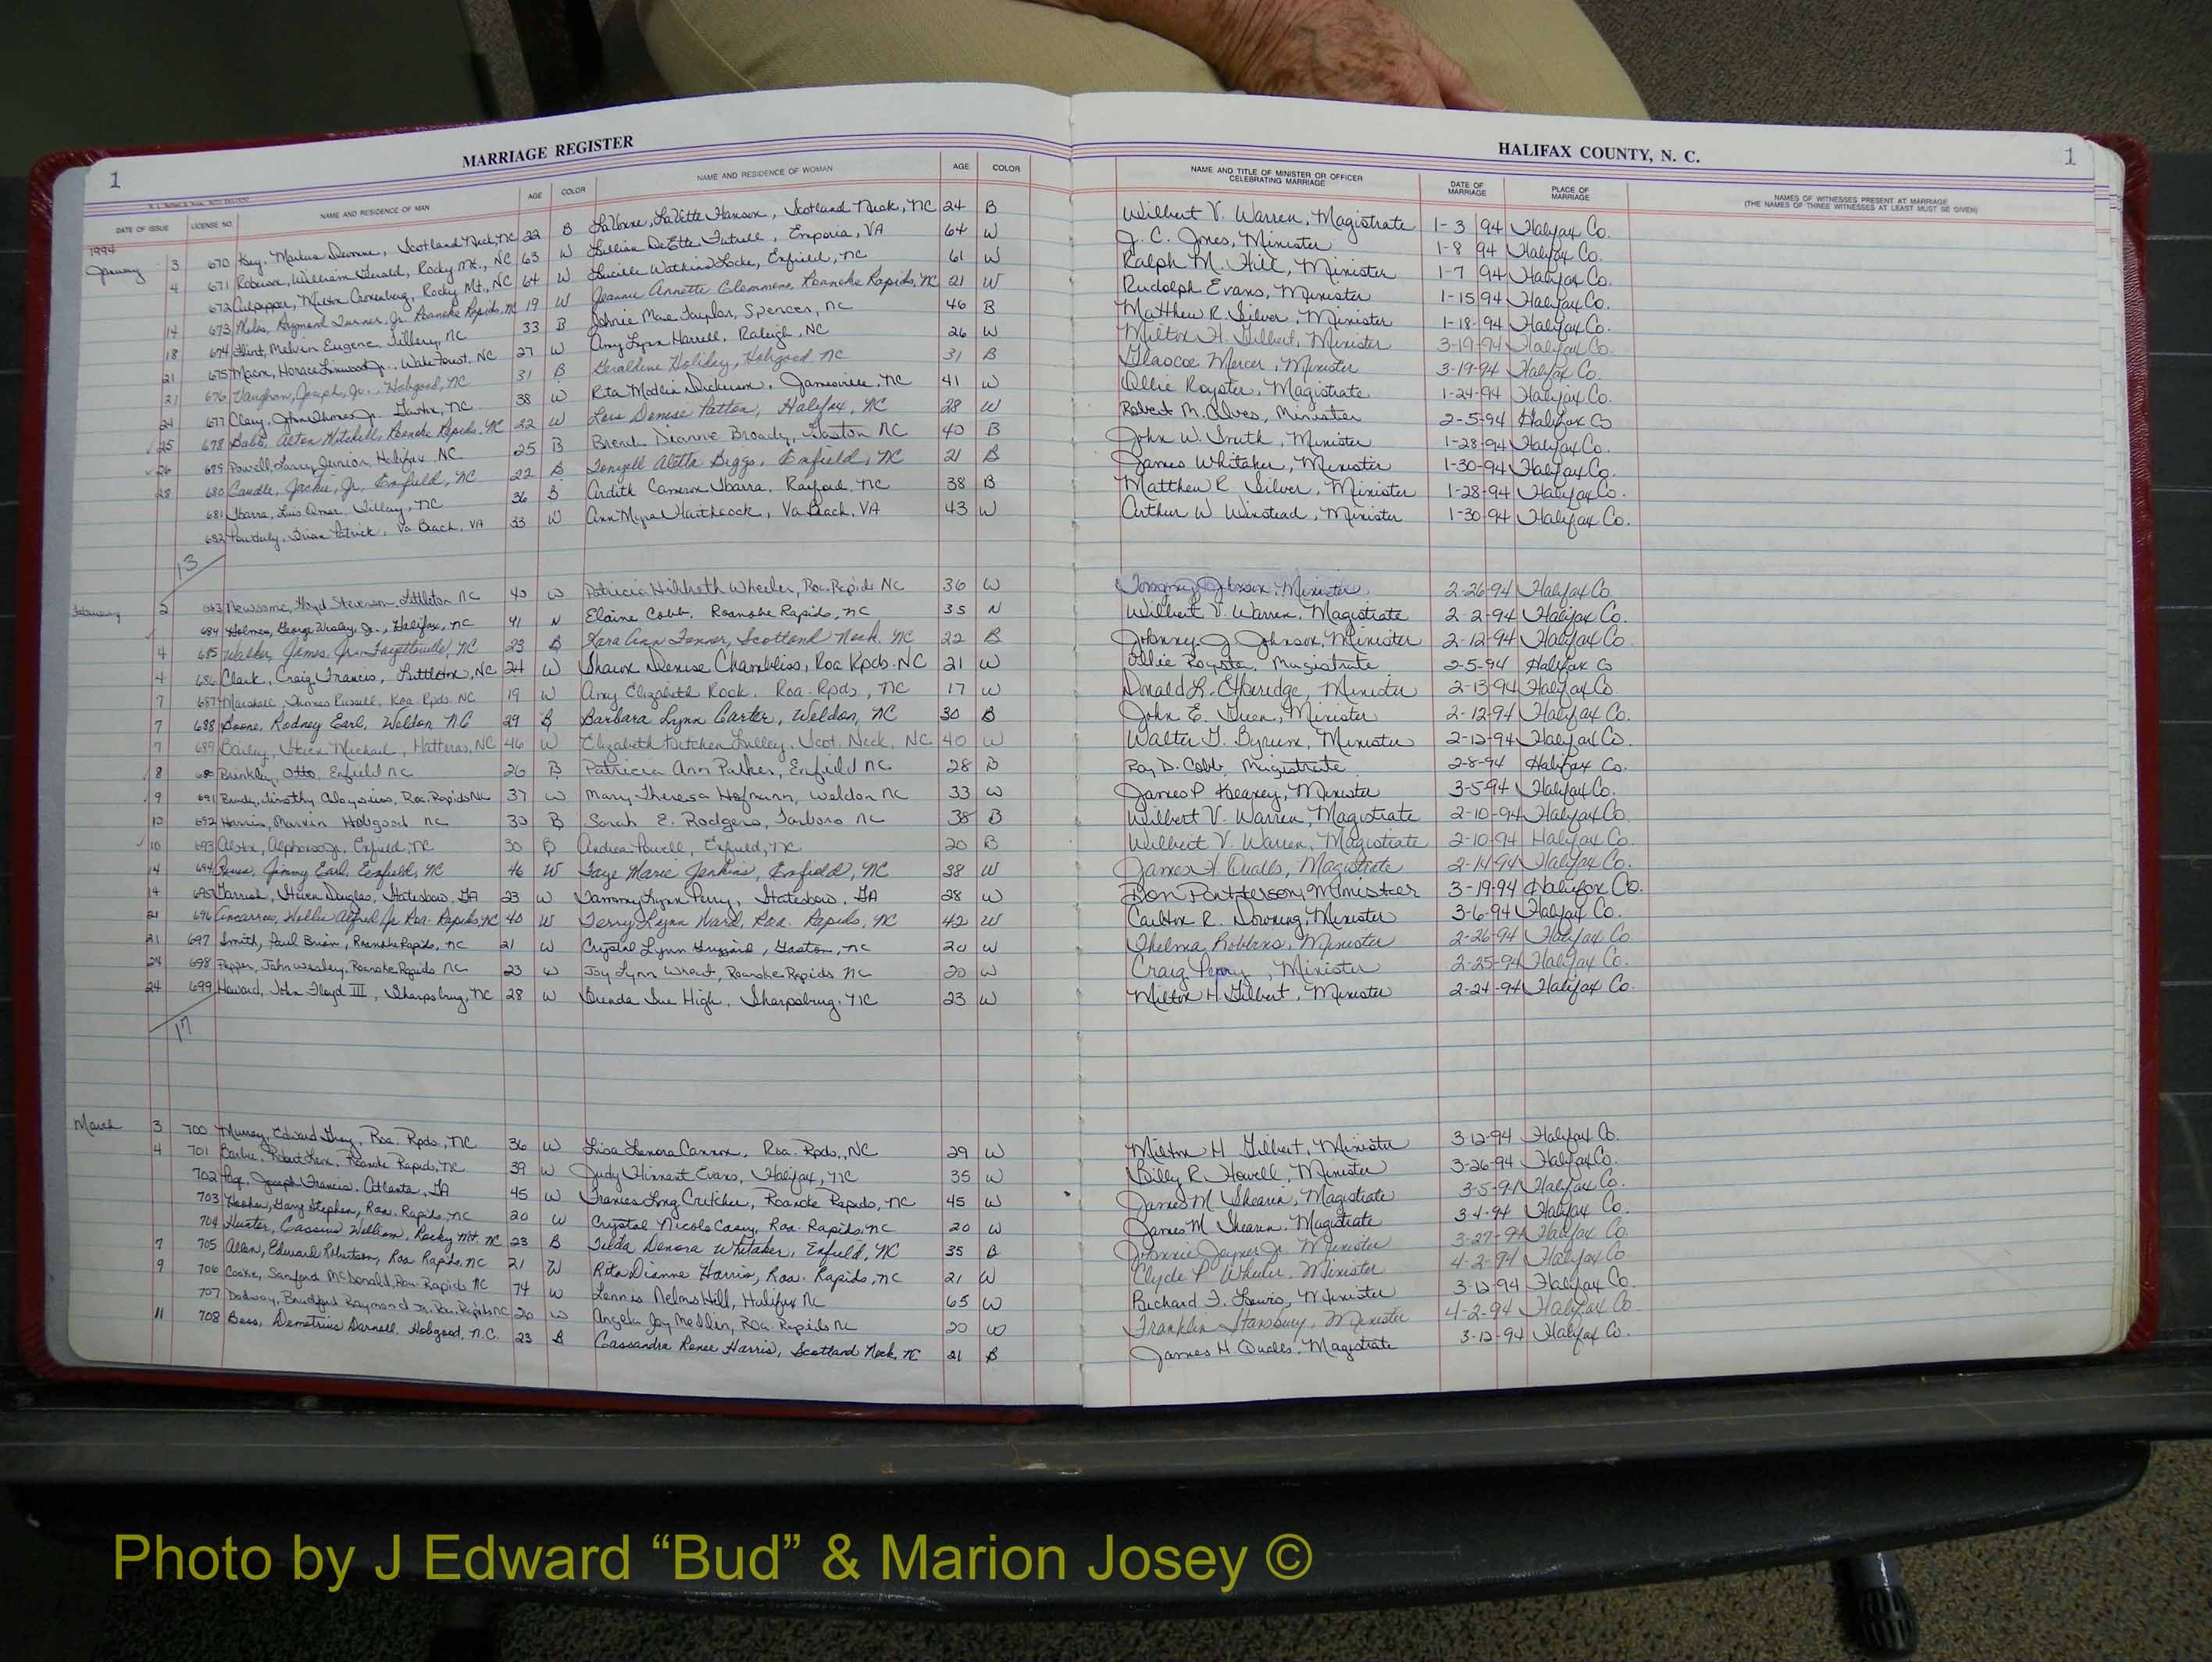 MARRIAGE REGISTER
HALIFAX COUNTY, N. C.
1
1
DATE OF ISSUE LICENSE NO. NAME AND RESIDENCE OF MAN AGE COLOR NAME AND RESIDENCE OF WOMAN AGE COLOR NAME AND TITLE OF MINISTER OR OFFICER CELEBRATING MARRIAGE DATE OF MARRIAGE PLACE OF MARRIAGE NAMES OF WITNESSES PRESENT AT MARRIAGE (THE NAMES OF THREE WITNESSES AT LEAST MUST BE GIVEN)
1994
January 3 670 Key, Scotland Neck, NC 22 B LaVette Hanson, Scotland Neck, NC 24 B Wilbert V. Warren, Magistrate 1-3 94 Halifax Co.
4 671 William Gerald, Rocky Mt., NC 63 W Lillian DeEtte Futrell, Emporia, VA 64 W J. C. Jones, Minister 1-8 94 Halifax Co.
672 Culpepper, Milton Rocky Mt., NC 64 W Lucille Watkins Locke, Enfield, NC 61 W Ralph M. Hill, Minister 1-7 94 Halifax Co.
14 673 Raymond Turner, Jr. Roanoke Rapids, NC 19 W Jeannie Annette Clemmons, Roanoke Rapids, NC 21 W Rudolph Evans, Minister 1-15 94 Halifax Co.
18 674 Flint, Melvin Eugene, Tillery, NC 33 B Johnie Mae Taylor, Spencer, NC 46 B Matthew R. Silver, Minister 1-18-94 Halifax Co.
21 675 Macon, Horace Linwood Jr. Wake Forest, NC 27 W Amy Lynn Harrell, Raleigh, NC 26 W Milton H. Gilbert, Minister 3-19-94 Halifax Co.
21 676 Vaughan, Joseph, Jr. Hobgood, NC 31 B Geraldine Holiday, Hobgood NC 31 B Glascoe Mercer, Minister 3-19-94 Halifax Co.
24 677 Clary, John Thomas Jr. Gaston, NC 38 W Rita Modlin Dickerson, Jamesville, NC 41 W Ollie Royster, Magistrate 1-24-94 Halifax Co.
25 678 Babb, Alton Mitchell, Roanoke Rapids, NC 22 W Lois Denise Patton, Halifax, NC 28 W Robert M. Alves, Minister 2-5-94 Halifax Co
26 679 Powell, Larry Junior, Halifax NC 25 B Brenda Dianne Broady, Gaston NC 40 B John W. Smith, Minister 1-28-94 Halifax Co.
28 680 Caudle, Jackie, Jr, Enfield, NC 22 B Aletta Biggs, Enfield, NC 21 B James Whitaker, Minister 1-30-94 Halifax Co.
681 Ibarra, Luis Omar, Tillery, NC 36 B Ardith Cameron Ibarra, NC 38 B Matthew R. Silver, Minister 1-28-94 Halifax Co.
682 Brian Patrick, Va Beach, VA 33 W Ann Myra Haithcock, Va Beach, VA 43 W Arthur W. Winstead, Minister 1-30 94 Halifax Co.
13
February 2 683 Newsome, Floyd Stevenson, Littleton NC 40 W Patricia Hildreth Wheeler, Roa. Rapids NC 36 W Minister 2-26-94 Halifax Co.
684 Holmes, George Wesley, Jr., Halifax, NC 41 N Elaine Cobb, Roanoke Rapids, NC 35 N Wilbert V. Warren, Magistrate 2-2-94 Halifax Co.
4 685 Walker, James, Jr. Fayetteville, NC 23 B Kara Ann Fenner, Scotland Neck, NC 22 B Johnny J. Johnson, Minister 2-12-94 Halifax Co.
4 686 Clark, Craig Francis, Littleton, NC 24 W Shawn Denise Chambliss, Roa Rpds. NC 21 W Ollie Royster, Magistrate 2-5-94 Halifax Co
7 687 Marshall, Thomas Russell, Roa Rpds, NC 19 W Amy Elizabeth Rook, Roa. Rpds, NC 17 W Donald L. Etheridge, Minister 2-13-94 Halifax Co.
7 688 Boone, Rodney Earl, Weldon, NC 29 B Barbara Lynn Carter, Weldon, NC 30 B John E. Green, Minister 2-12-94 Halifax Co.
7 689 Bailey, Steven Michael, Hatteras, NC 46 W Elizabeth Kitchen Lilley, Scot. Neck, NC 40 W Walter G. Byrum, Minister 2-12-94 Halifax Co.
8 690 Brinkley, Otto, Enfield NC 26 B Patricia Ann Parker, Enfield NC 28 B Roy D. Cobb, Magistrate 2-8-94 Halifax Co.
9 691 Brady, Timothy Aloysius, Roa. Rapids NC 37 W Mary Theresa Hofmann, Weldon NC 33 W James P. Kearney, Minister 3-5-94 Halifax Co.
10 692 Harris, Marvin Hobgood NC 30 B Sarah E. Rodgers, Tarboro NC 38 B Wilbert V. Warren, Magistrate 2-10-94 Halifax Co.
10 693 Alston, Alphonso Jr. Enfield, NC 30 B Andrea Powell, Enfield, NC 20 B Wilbert V. Warren, Magistrate 2-10-94 Halifax Co.
14 694 Jimmy Earl, Enfield, NC 46 W Faye Marie Jenkins, Enfield, NC 38 W James H. Qualls, Magistrate 2-14-94 Halifax Co.
14 695 Garrish, Steven Douglas, Statesboro, GA 23 W Tammy Lynn Perry, Statesboro, GA 28 W Don Patterson, Minister 3-19-94 Halifax Co.
21 696 Ancarrow, Willie Alfred Jr Roa. Rapids, NC 40 W Terry Lynn Ward, Roa. Rapids, NC 42 W Carlton R. Downing, Minister 3-6-94 Halifax Co.
21 697 Smith, Paul Brian, Roanoke Rapids, NC 21 W Crystal Lynn Gaston, NC 20 W Thelma Robbins, Minister 2-26-94 Halifax Co
24 698 Pepper, John Wesley, Roanoke Rapids NC 23 W Joy Lynn Roanoke Rapids NC 20 W Craig Perry, Minister 2-25-94 Halifax Co.
24 699 Howard, John Floyd III, Sharpsburg, NC 28 W Brenda Sue High, Sharpsburg, NC 23 W Milton H. Gilbert, Minister 2-24-94 Halifax Co.
17
March 3 700 Murray, Edward Gray, Roa. Rpds., NC 36 W Lisa Lenora Cannon, Roa. Rpds., NC 29 W Milton H Gilbert, Minister 3-12-94 Halifax Co.
4 701 Barbee, Robert Leon, Roanoke Rapids, NC 39 W Judy Hinnant Evans, Halifax, NC 35 W Billy R. Howell, Minister 3-26-94 Halifax Co.
702 Joseph Francis, Atlanta, GA 45 W Frances Long Crutcher, Roanoke Rapids, NC 45 W James M Shearin, Magistrate 3-5-94 Halifax Co.
703 Gary Stephen, Roa. Rapids, NC 20 W Crystal Nicole Casey, Roa. Rapids, NC 20 W James M Shearin, Magistrate 3-4-94 Halifax Co.
704 Hunter, Cassius William, Rocky Mt. NC 23 B Denora Whitaker, Enfield, NC 35 B Johnnie Joyner Jr. Minister 3-27-94 Halifax Co.
7 705 Allen, Edward Robertson, Roa. Rapids, NC 21 W Rita Dianne Harris, Roa. Rapids, NC 21 W Clyde P. Wheeler, Minister 4-2-94 Halifax Co
9 706 Cooke, Sanford McDonald, Roa. Rapids NC 74 W Lennis Nelms Hill, Halifax NC 65 W Richard F. Lewis, Minister 3-12-94 Halifax Co.
707 Bradford Raymond Jr. Roa. Rapids NC 20 W Angela Joy Medlin, Roa. Rapids NC 20 W Franklin Stansbury, Minister 4-2-94 Halifax Co.
11 708 Bess, Demetrius Darnell, Hobgood, N.C. 23 B Cassandra Renee Harris, Scotland Neck, NC 21 B James H. Qualls, Magistrate 3-12-94 Halifax Co.
Photo by J Edward “Bud” & Marion Josey ©